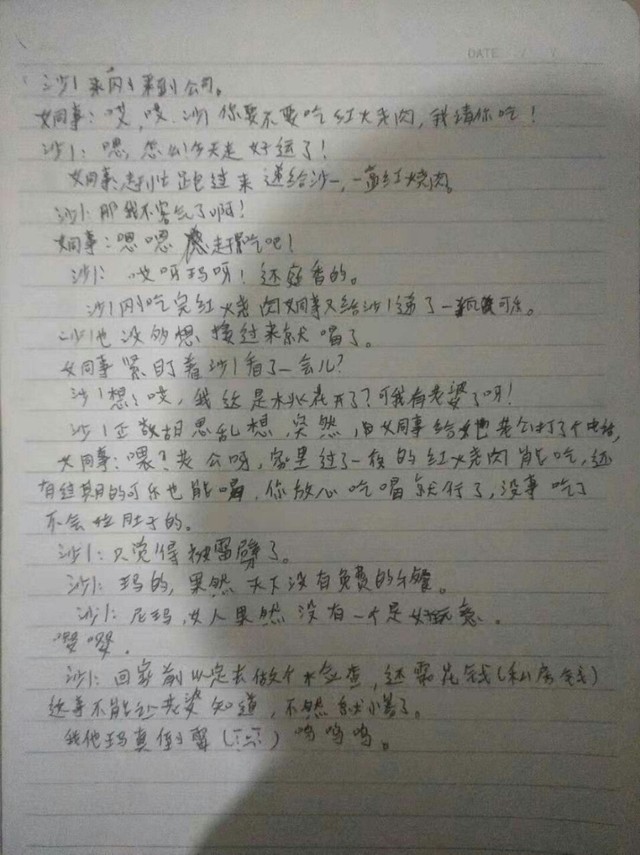 DATE
沙1来刚刚来到公司。
女同事:哎,哎.沙1你要不要吃红火老肉,我请你吃!
沙1:嗯,怎么今天走好运了!
女同事:赶忙跑过来递给沙一,一盒红烧肉。
沙1:那我不客气了啊!
女同事:嗯嗯赶紧吃吧!
沙1:哎呀玛呀!还挺香的。
沙1刚吃完红烧肉女同事又给沙1递了一瓶可乐。
沙1也没多想接过来就喝了。
女同事紧盯着沙1看了一会儿?
沙1想:哎,我这是木兆花开了?可我有老婆了呀!
沙1正敢胡思乱想,突然,由女同事给她老公打了个电话,
女同事:喂?老公呀,家里过了一夜的红烧肉能吃,还
有过期的可乐也能喝,你放心吃喝就行了,没事吃了
不会拉肚子的。
沙1:只觉得被雷劈了。
沙1:玛的,果然天下没有免费的午餐。
沙1:尼玛,女人果然没有一个是好玩意.
嘤嘤.
沙1:回家前必定去做个检查,还需花钱(私房钱)
这事不能让老婆知道,不然就惨了。
我他玛真倒霉()呜呜呜。